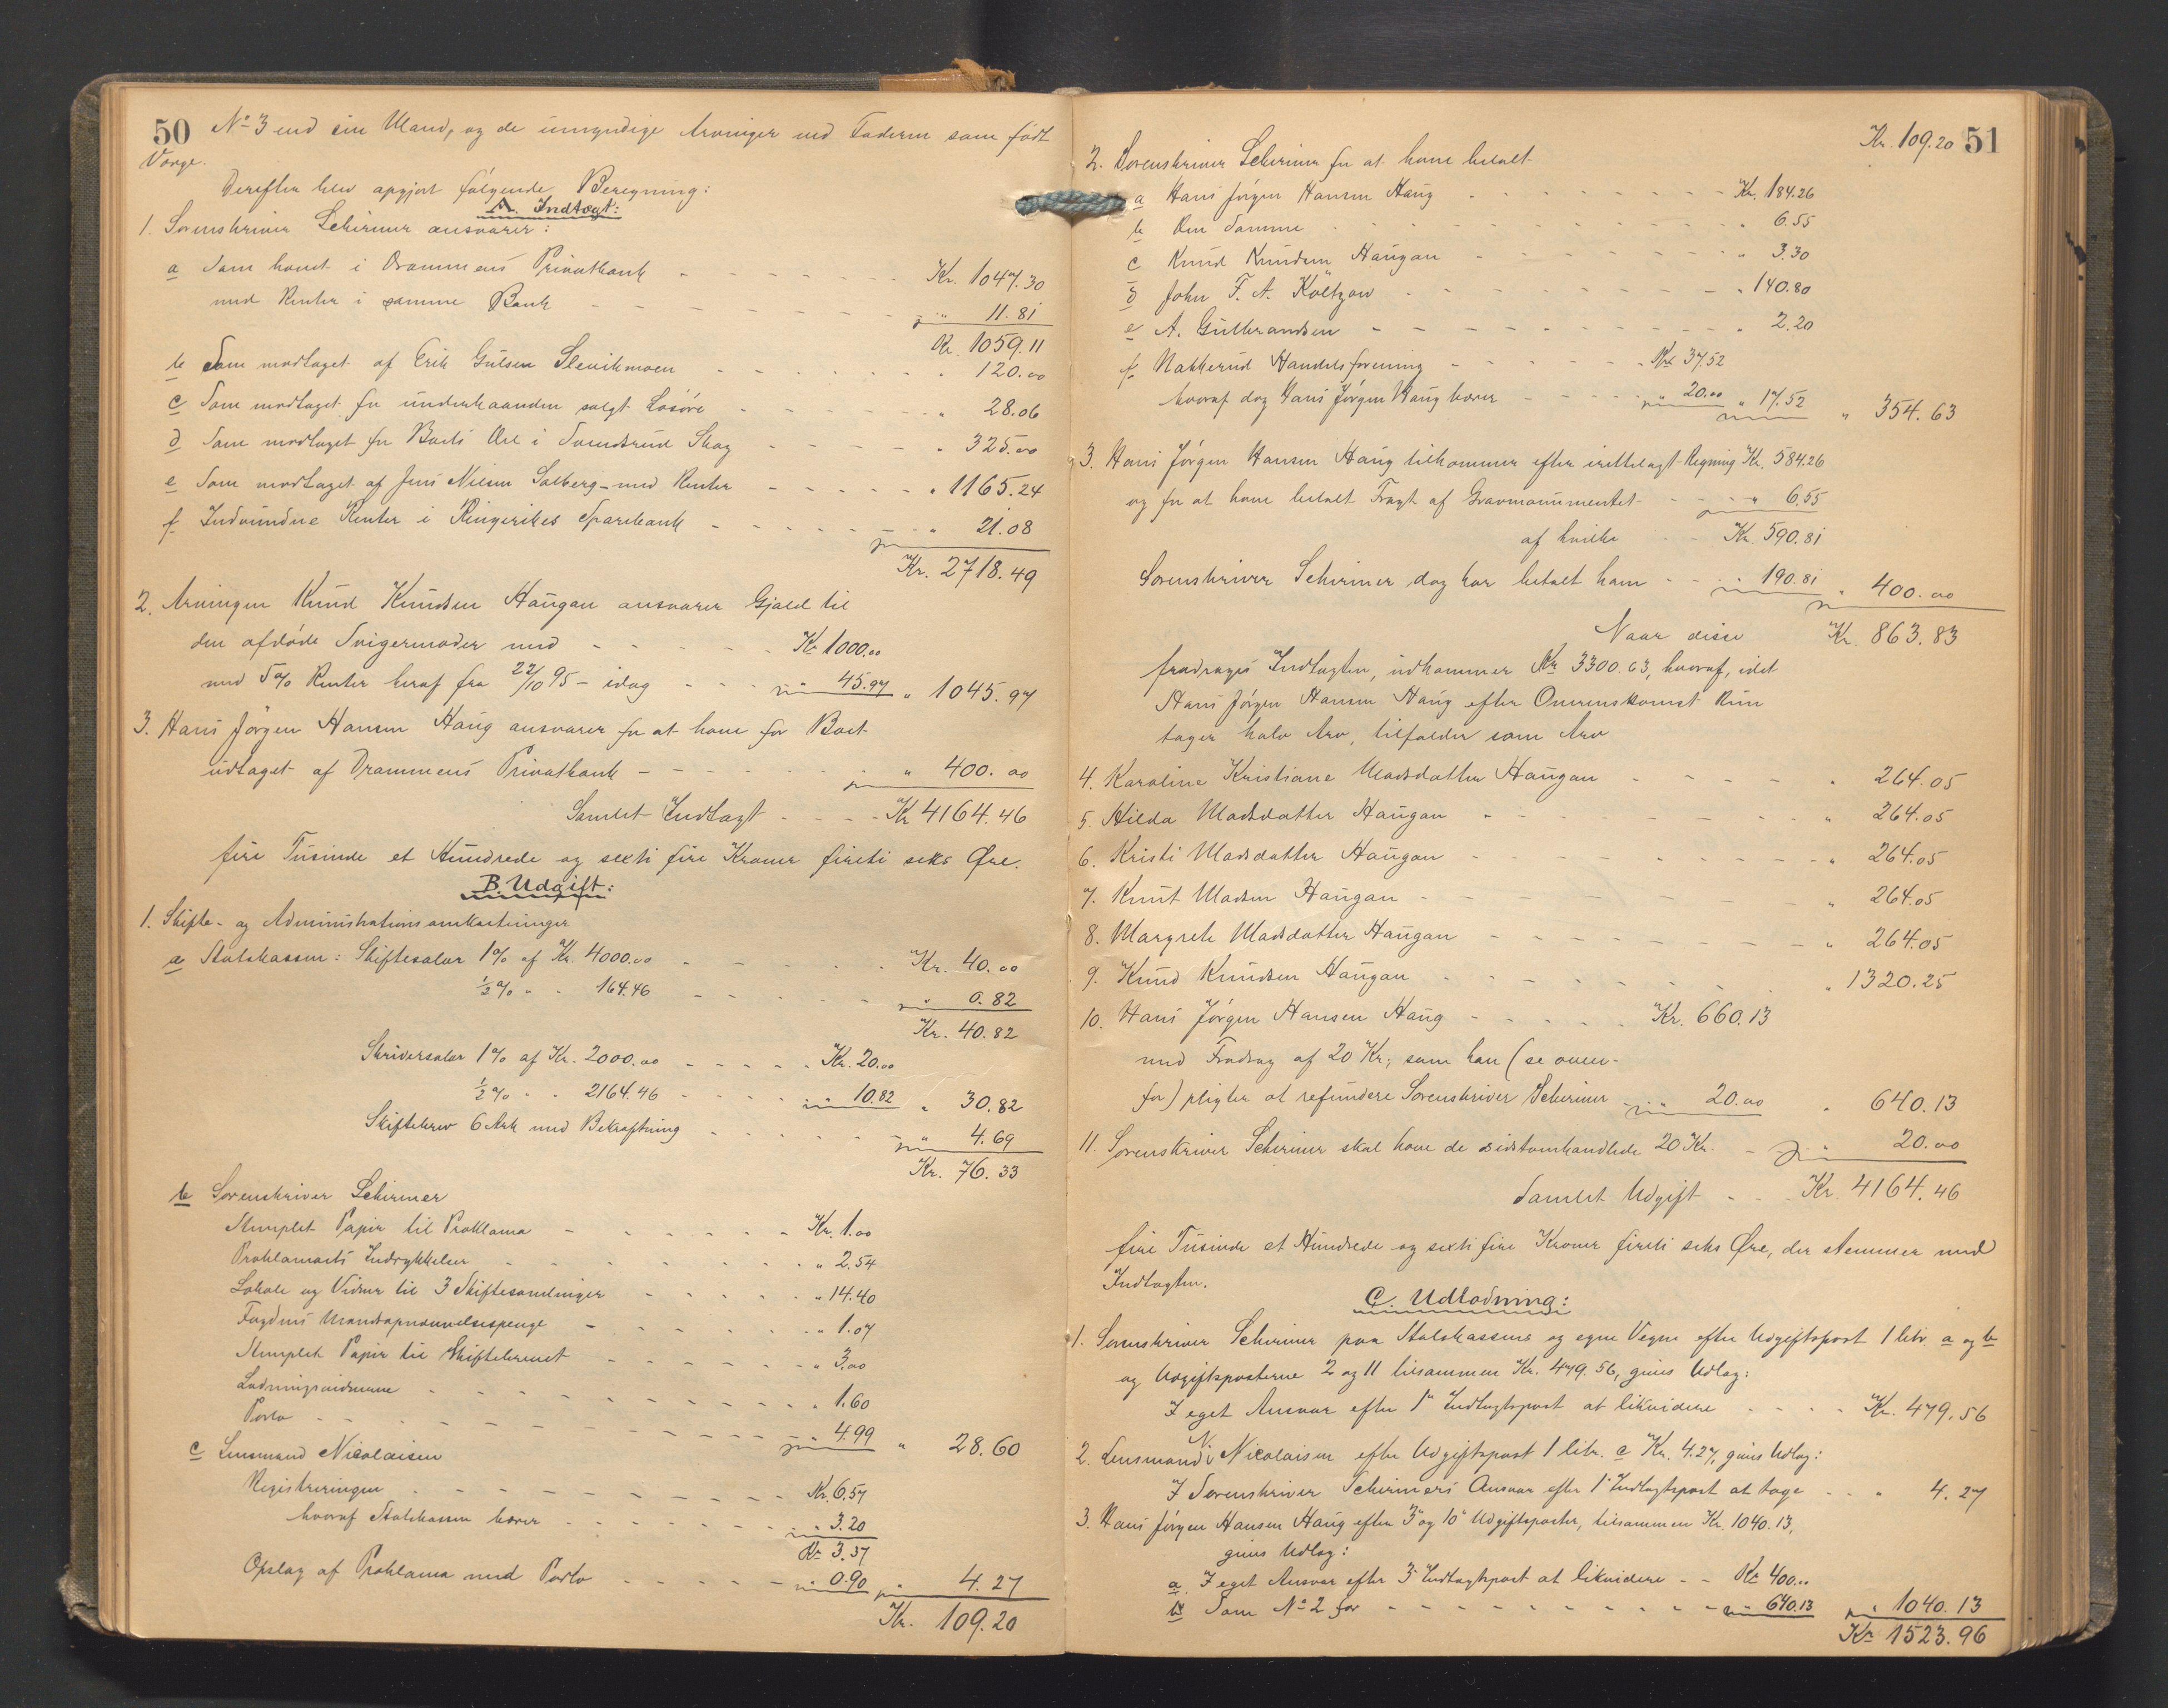 50 No 3 end sin Mand, og de umyndige Arvinger ved Faderen som født
Værge.
Derefter blev opgjort følgende Beregning:
A. Indtægt:
1. Sorenskriver Schirmer ansvarer:
a Som hævet i Drammens Privatbank - - - Kr. 1047.30
med Renter i samme Bank - - - " 11.81
Kr. 1059.11
b Som modtaget af Erik Gulsen Slevikmoen - - - " 120.00
c Som modtaget for underhaanden solgt Løsøre - - - " 28.06
d Som modtaget for Boets Del i Svendsrud Skog - - - " 325.00
e Som modtaget af Jens Nilsen Solberg med Renter - - - " 1165.24
f Indvundne Renter i Ringerikes Sparebank - - - " 21.08
Kr. 2718.49
2. Arvingen Knud Knudsen Haugan ansvarer Gjæld til
den afdøde Svigermoder med - - - Kr 1000.00
med 5% Renter heraf fra 22/10 95 - idag - - - " 45.97 " 1045.97
3. Hans Jørgen Hansen Haug ansvarer for at have for Boet
udtaget af Drammens Privatbank - - - " 400.00
Samlet Indtægt - - - Kr 4164.46
fire Tusinde et Hundrede og sexti fire Kroner firti seks Øre.
B. Udgift:
1. Skifte- og Administrationsomkostninger
a Statskassen: Skiftesalær 1% af Kr. 4000.00 - - - Kr. 40.00
½% " " 164.46 - - - " 0.82
Kr. 40.82
Skriversalær 1% af Kr. 2000.00 - - - Kr. 20.00
½% " " 2164.46 - - - " 10.82 " 30.82
Skiftebrev 6 Ark med Bekræftning - - - " 4.69
Kr. 76.33
b Sorenskriver Schirmer
Stemplet Papir til Proklama - - - Kr. 1.00
Proklamaets Indrykkelser - - - " 2.54
Lokale og Vidner til 3 Skiftesamlinger - - - " 14.40
Fogdens Mandsopnævnelsespenge - - - " 1.07
Stemplet Papir til Skiftebrevet - - - " 3.00
Lodningsvidnerne - - - " 1.60
Porto - - - " 4.99 " 28.60
c Lensmand Nicolaisen
Registreringen - - - Kr. 6.57
hvoraf Statskassen bærer - - - " 3.20
Kr 3.37
Opslag af Proklama med Porto - - - " 0.90 " 4.27
Kr. 109.20
Kr. 109.20 51
2. Sorenskriver Schirmer for at have betalt
a Hans Jørgen Hansen Haug - - - Kr. 184.26
b Den Samme - - - " 6.55
c Knud Knudsen Haugan - - - " 3.30
d John F. A. Költzow - - - " 140.80
e A. Gulbrandsen - - - " 2.20
f Nakkerud Handelsforening - - - Kr 37.52
hvoraf dog Hans Jørgen Haug bærer - - - " 20.00 " 17.52 " 354.63
3. Hans Jørgen Hansen Haug tilkommer efter irettelagt Regning Kr. 584.26
og for at have betalt Fragt af Gravmonumentet - - - " 6.55
af hvilke - - Kr. 590.81
Sorenskriver Schirmer dog har betalt ham - - " 190.81 " 400.00
Naar disse Kr. 863.83
fradrages Indtægten, udkommer Kr 3300.63, hvoraf, idet
Hans Jørgen Hansen Haug efter Overenskomst kun
tager halv Arv, tilfalder som Arv
4. Karoline Kristiane Madsdatter Haugan - - - " 264.05
5. Hilda Madsdatter Haugan - - - " 264.05
6. Kristi Madsdatter Haugan - - - " 264.05
7. Knut Madsen Haugan - - - " 264.05
8. Margrete Madsdatter Haugan - - - " 264.05
9. Knud Knudsen Haugan - - - " 1320.25
10. Hans Jørgen Hansen Haug - - - Kr. 660.13
med Fradrag af 20 Kr., som han (se oven-
for) pligter at refundere Sorenskriver Schirmer - " 20.00 " 640.13
11. Sorenskriver Schirmer skal have de sidstomhandlede 20 Kr. - " 20.00
Samlet Udgift - - Kr. 4164.46
fire Tusinde et Hundrede og sexti fire Kroner firti seks Øre, der stemmer med
Indtægten.
C. Udlodning:
1. Sorenskriver Schirmer paa Statskassens og egne Vegne efter Udgiftspost 1 litr. a og b
og Udgiftsposterne 2 og 11 tilsammen Kr. 479.56, gives Udlæg:
I eget Ansvar efter 1" Indtægtspost at likvidere - - - Kr. 479.56
2. Lensmand N. Nicolaisen efter Udgiftspost 1 litr. c Kr. 4.27, gives Udlæg:
I Sorenskriver Schirmers Ansvar efter 1" Indtægtspost at tage - - " 4.27
3. Hans Jørgen Hansen Haug efter 3" og 10" Udgiftsposter, tilsammen Kr. 1040.13,
gives Udlæg:
a. I eget Ansvar efter 3" Indtægtspost at likvidere - - Kr 400.00
b Som No 2 for - - - " 640.13 " 1040.13
Kr 1523.96